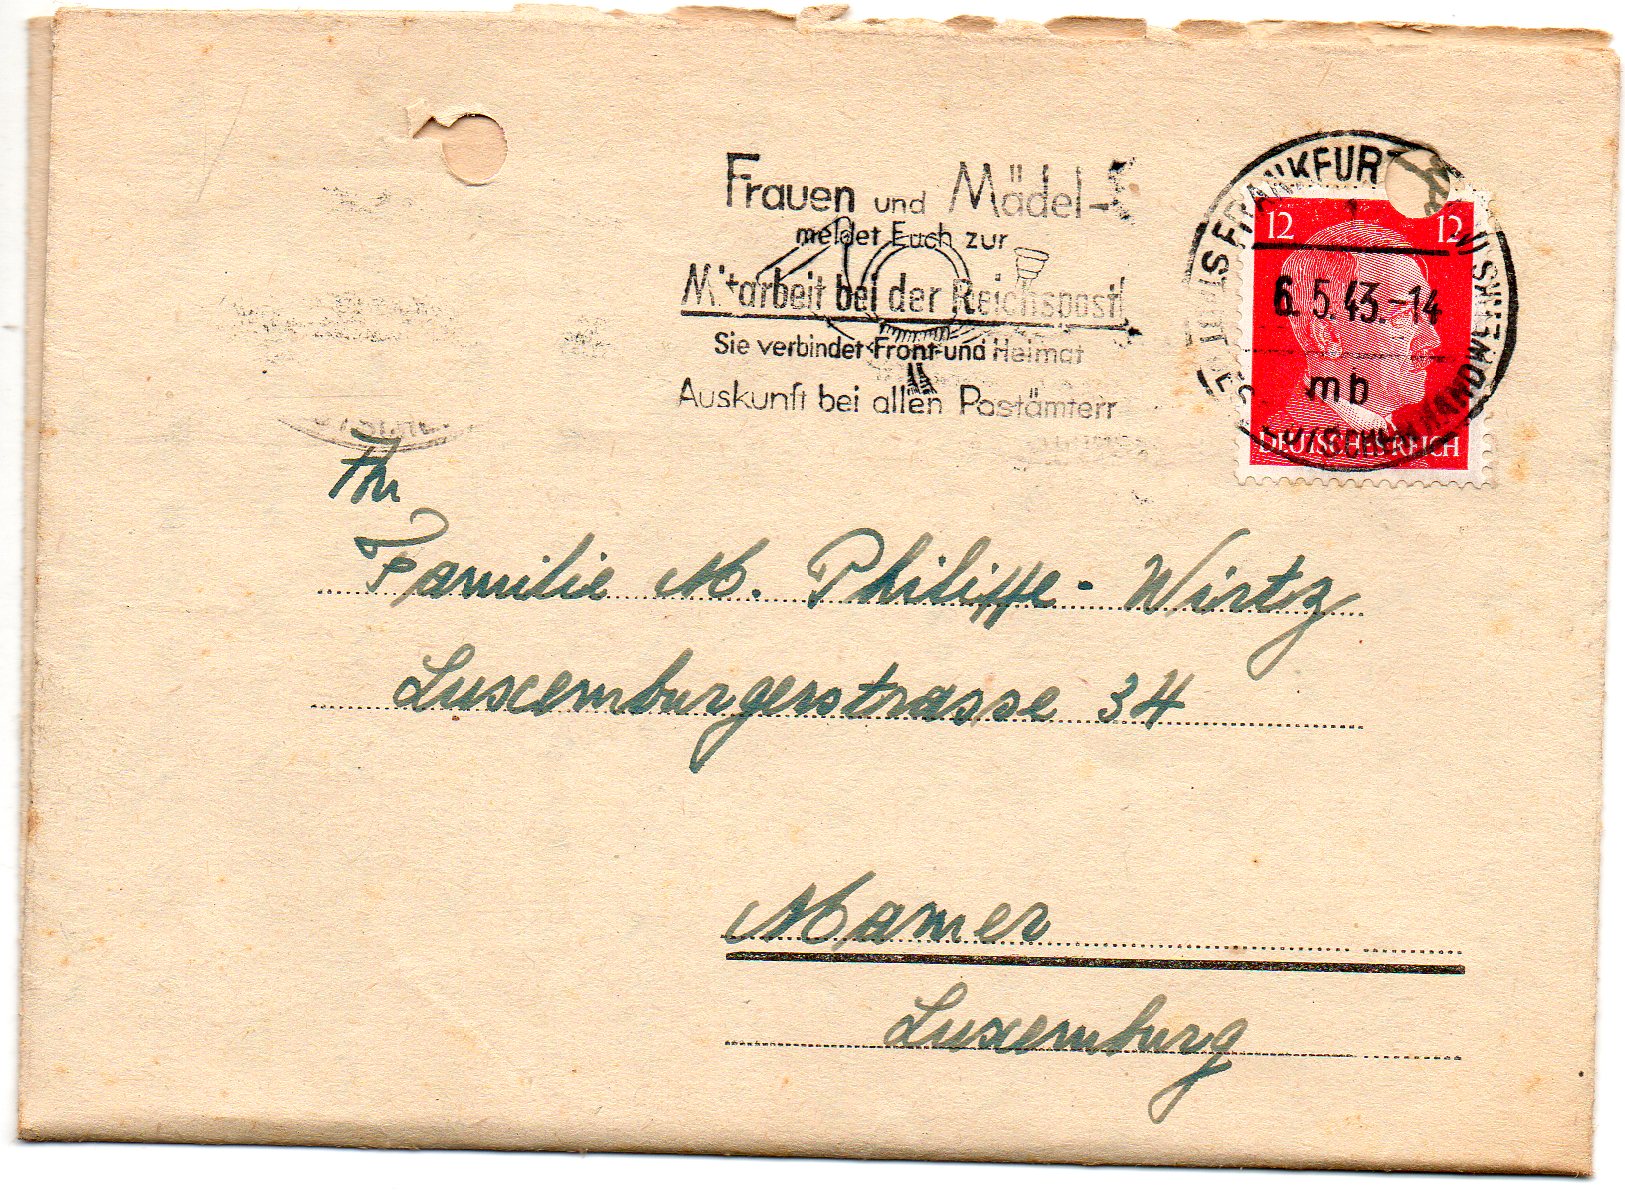 Frauen und Mädel-
meldet Euch zur
Mitarbeit bei der Reichspost!
Sie verbindet Front und Heimat
Auskunft bei allen Postämtern
FRANKFURT
12 12
6.5.43.-14
mb
HANDWERKS
DEUTSCHES REICH
An
Familie M. Philippe-Wirtz
Luxemburgerstrasse 34
Mamer
Luxemburg